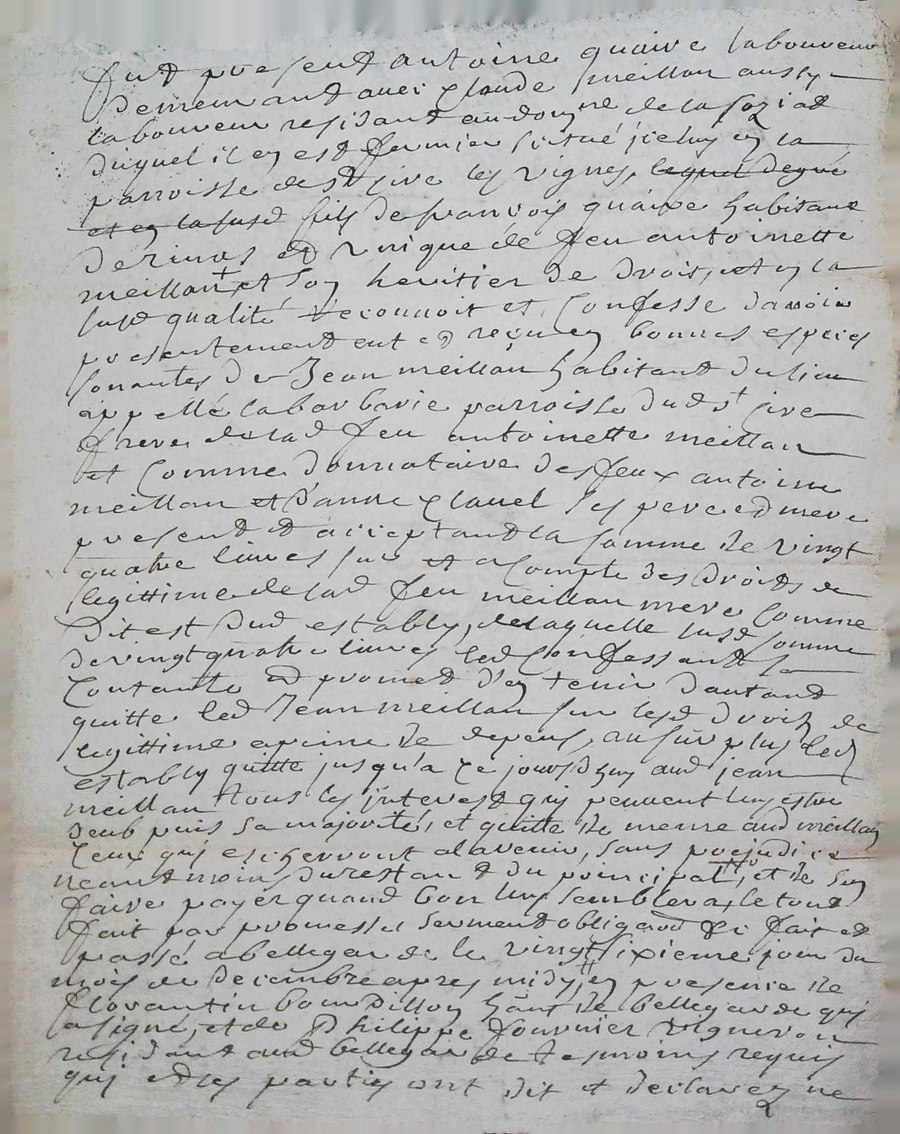 fut present antoine quaire laboureur
demeurant avec claude meillan aussy
laboureur residant au domne de la
duquel il en est fermier situé iceluy en la
parroisse de st cire les vignes, lequel degré
et en la susd fils de francois quaire habitant
de rivas et unique de feu antoinette
meillan + et son heritier de droit, et en la
susd qualité reconnoit et Confesse d'avoir
presentement eut et reçu en bonnes especes
sonantes de Jean meillan habitant du lieu
appellé la barbarie parroisse dud st cire
frere de lad feu antoinette meillan
et Comme donnataire des feux antoine
meillan et d'anne clauel ses pere et mere
present et acceptant la somme de vingt
quatre liures sur et a Compte des droits de
legittime de lad feu meillan mere comme
dit est dud estably, de laquelle susd somme
de vingt quatre liures led Confessant se
Contante et promet d'en tenir d'autant
quitte led Jean meillan sur lesd droits de
legittime a peine de depens, au surplus led
estably quitte jusqu'a ce jourd'huy aud jean
meillan tous les interest quy peuvent luy estre
deub puis sa majorité, et quitte de meme aud meillan
Ceux quy escherront al avenir, sans prejudice
neantmoins du restant du principal, et de s'en
faire payer quand bon luy semblera, le tout
fait par promesse serment obligaon &c fait et
passé a bellegarde le vingt sixieme jour du
mois de decembre apres midy, en presence de
florantin bourdillon hant de bellegarde quy
a signé, et de Philippe fournier vigneron
residant aud bellegarde tesmoins requis
quy et les parties ont dit et declarez ne